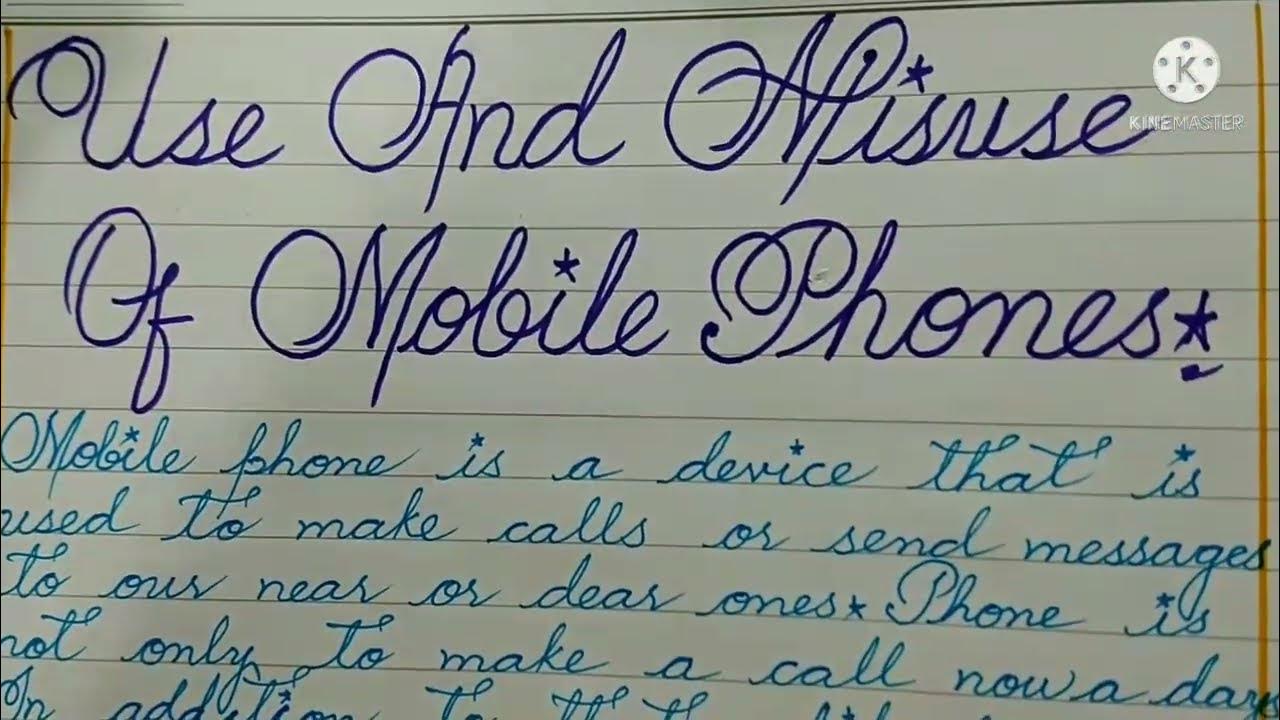 Use And Misuse
K
KINEMASTER
Of Mobile Phones.
Mobile phone is a device that is
used to make calls or send messages
to our near or dear ones. Phone is
not only to make a call now a days
In addition to